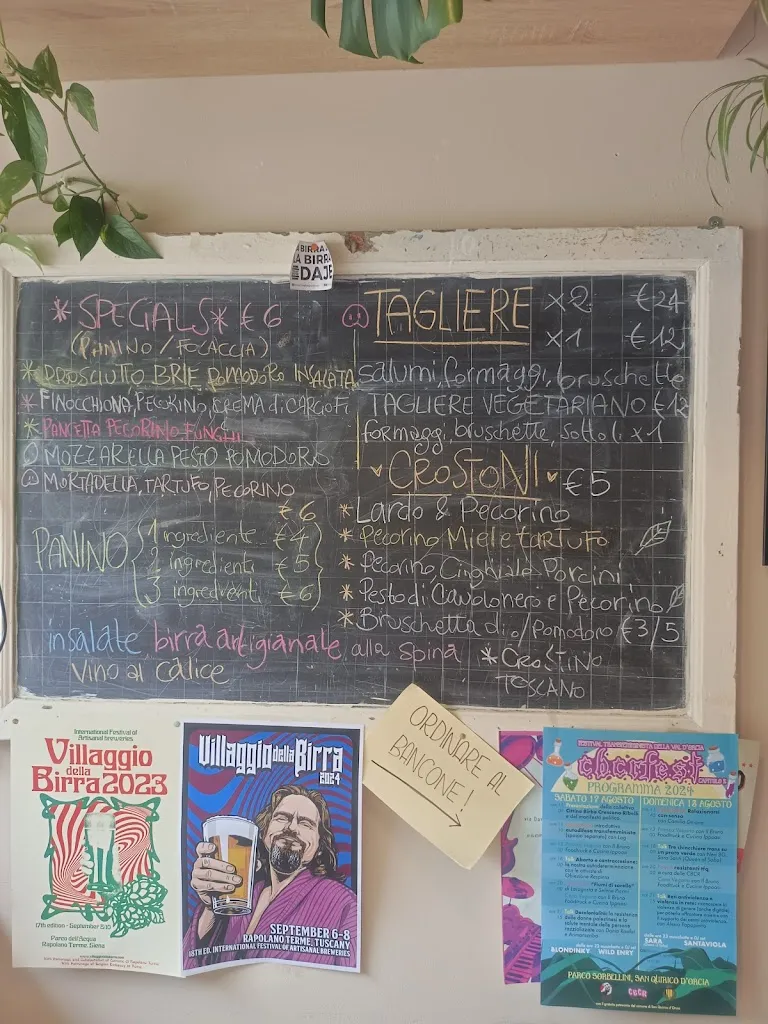 LA BIRRA
DAJE
*SPECIALS* € 6
(PANINO / FOCACCIA)
* PROSCIUTTO BRIE POMODORO INSALATA
* FINOCCHIONA, PECORINO, CREMA di CARCIOFI
* PANCETTA PECORINO FUNGHI
MOZZARELLA PESTO POMODORO
MORTADELLA, TARTUFO, PECORINO
€ 6
PANINO
1 ingrediente € 4
2 ingredienti € 5
3 ingredienti € 6
TAGLIERE x2 €24
x1 €12
salumi, formaggi, bruschette
TAGLIERE VEGETARIANO €12
formaggi, bruschette, sottoli x1
CROSTONI €5
* Lardo & Pecorino
* Pecorino Miele e TARTUFO
* Pecorino Cinghiale Porcini
* Pesto di Cavolonero e Pecorino
* Bruschetta di o/Pomodoro €3/5
insalate, birra artigianale alla spina
vino al calice
*CROSTINO
TOSCANO
ORDINARE AL
BANCONE!
International Festival of
Artisanal breweries
Villaggio
della
Birra 2023
17th edition - September 8.10
Parco dell'Acqua
Rapolano Terme, Siena
Villaggio della Birra
2024
SEPTEMBER 6-8
RAPOLANO TERME, TUSCANY
18TH ED. INTERNATIONAL FESTIVAL OF ARTISANAL BREWERIES
FESTIVAL TRANSFEMMINISTA DELLA VAL D'ORCIA
PROGRAMMA 2024
SABATO 17 AGOSTO
DOMENICA 18 AGOSTO
BLONDINKY WILD ENRY
SARA SANTAVIOLA
PARCO SORBELLINI, SAN QUIRICO D'ORCIA